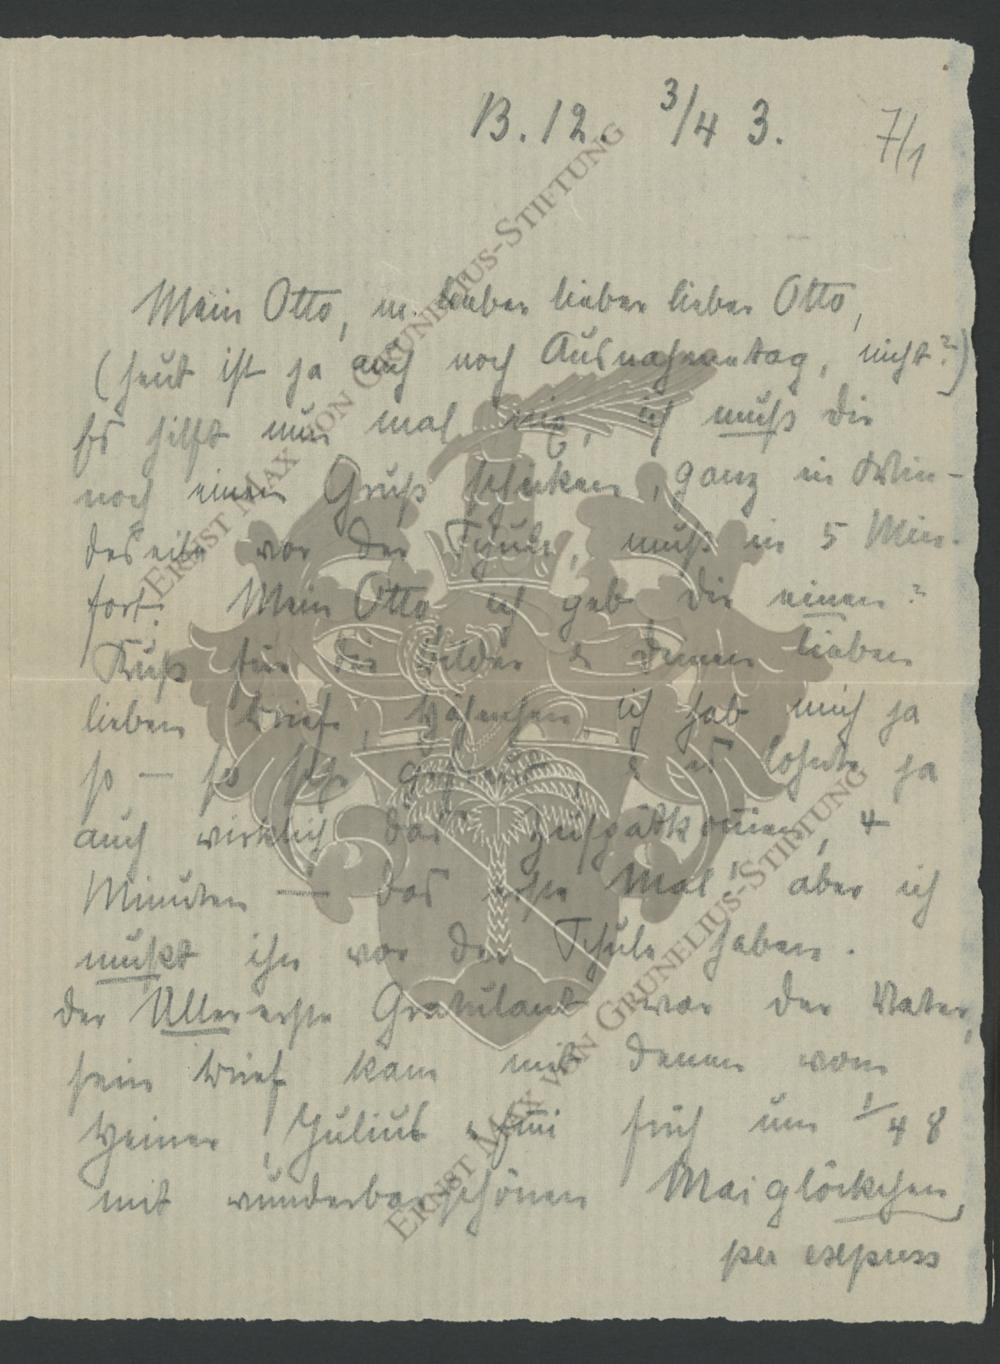 B. 12. 3/4 3.
7/1
Mein Otto, m. lieber lieber lieber Otto,
(heut ist ja auch noch Ausnahmetag, nicht?)
Es hilft nun mal nix, ich muß Dir
noch einen Gruß schicken, ganz in Win-
deseile vor der Schule, muß in 5 Min.
fort. Mein Otto ich geb Dir einen?
Kuß für die Bilder & Deinen lieben
lieben Brief, ich hab mich ja
so – so sehr gefreut, & es lohnte ja
auch wirklich das Zuspätkommen, 4
Minuten – das erste Mal, aber ich
mußt ihn vor der Schule haben.
der Allererste Gratulant war der Vater,
sein Brief kam mit Deinem vom
Heiner, Julius früh um 1/4 8
mit wunderbarschönen Maiglöckchen,
per express
ERNST MAX VON GRUNELIUS-STIFTUNG
ERNST MAX VON GRUNELIUS-STIFTUNG